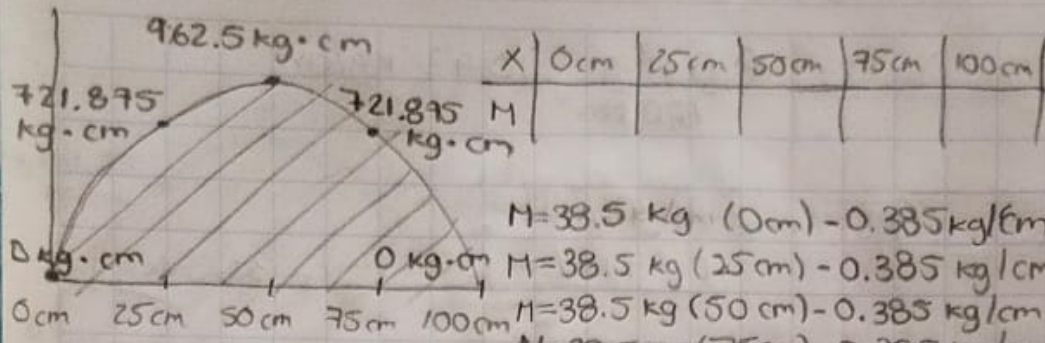 962.5 kg·cm
721.875
kg·cm
721.875
kg·cm
0 kg·cm
0 kg·cm
0cm 25cm 50cm 75cm 100cm
X 0cm 25cm 50cm 75cm 100cm
M
M=38.5 kg (0cm) - 0.385kg/cm
M=38.5 kg (25cm) - 0.385 kg/cm
M=38.5 kg (50cm) - 0.385 kg/cm